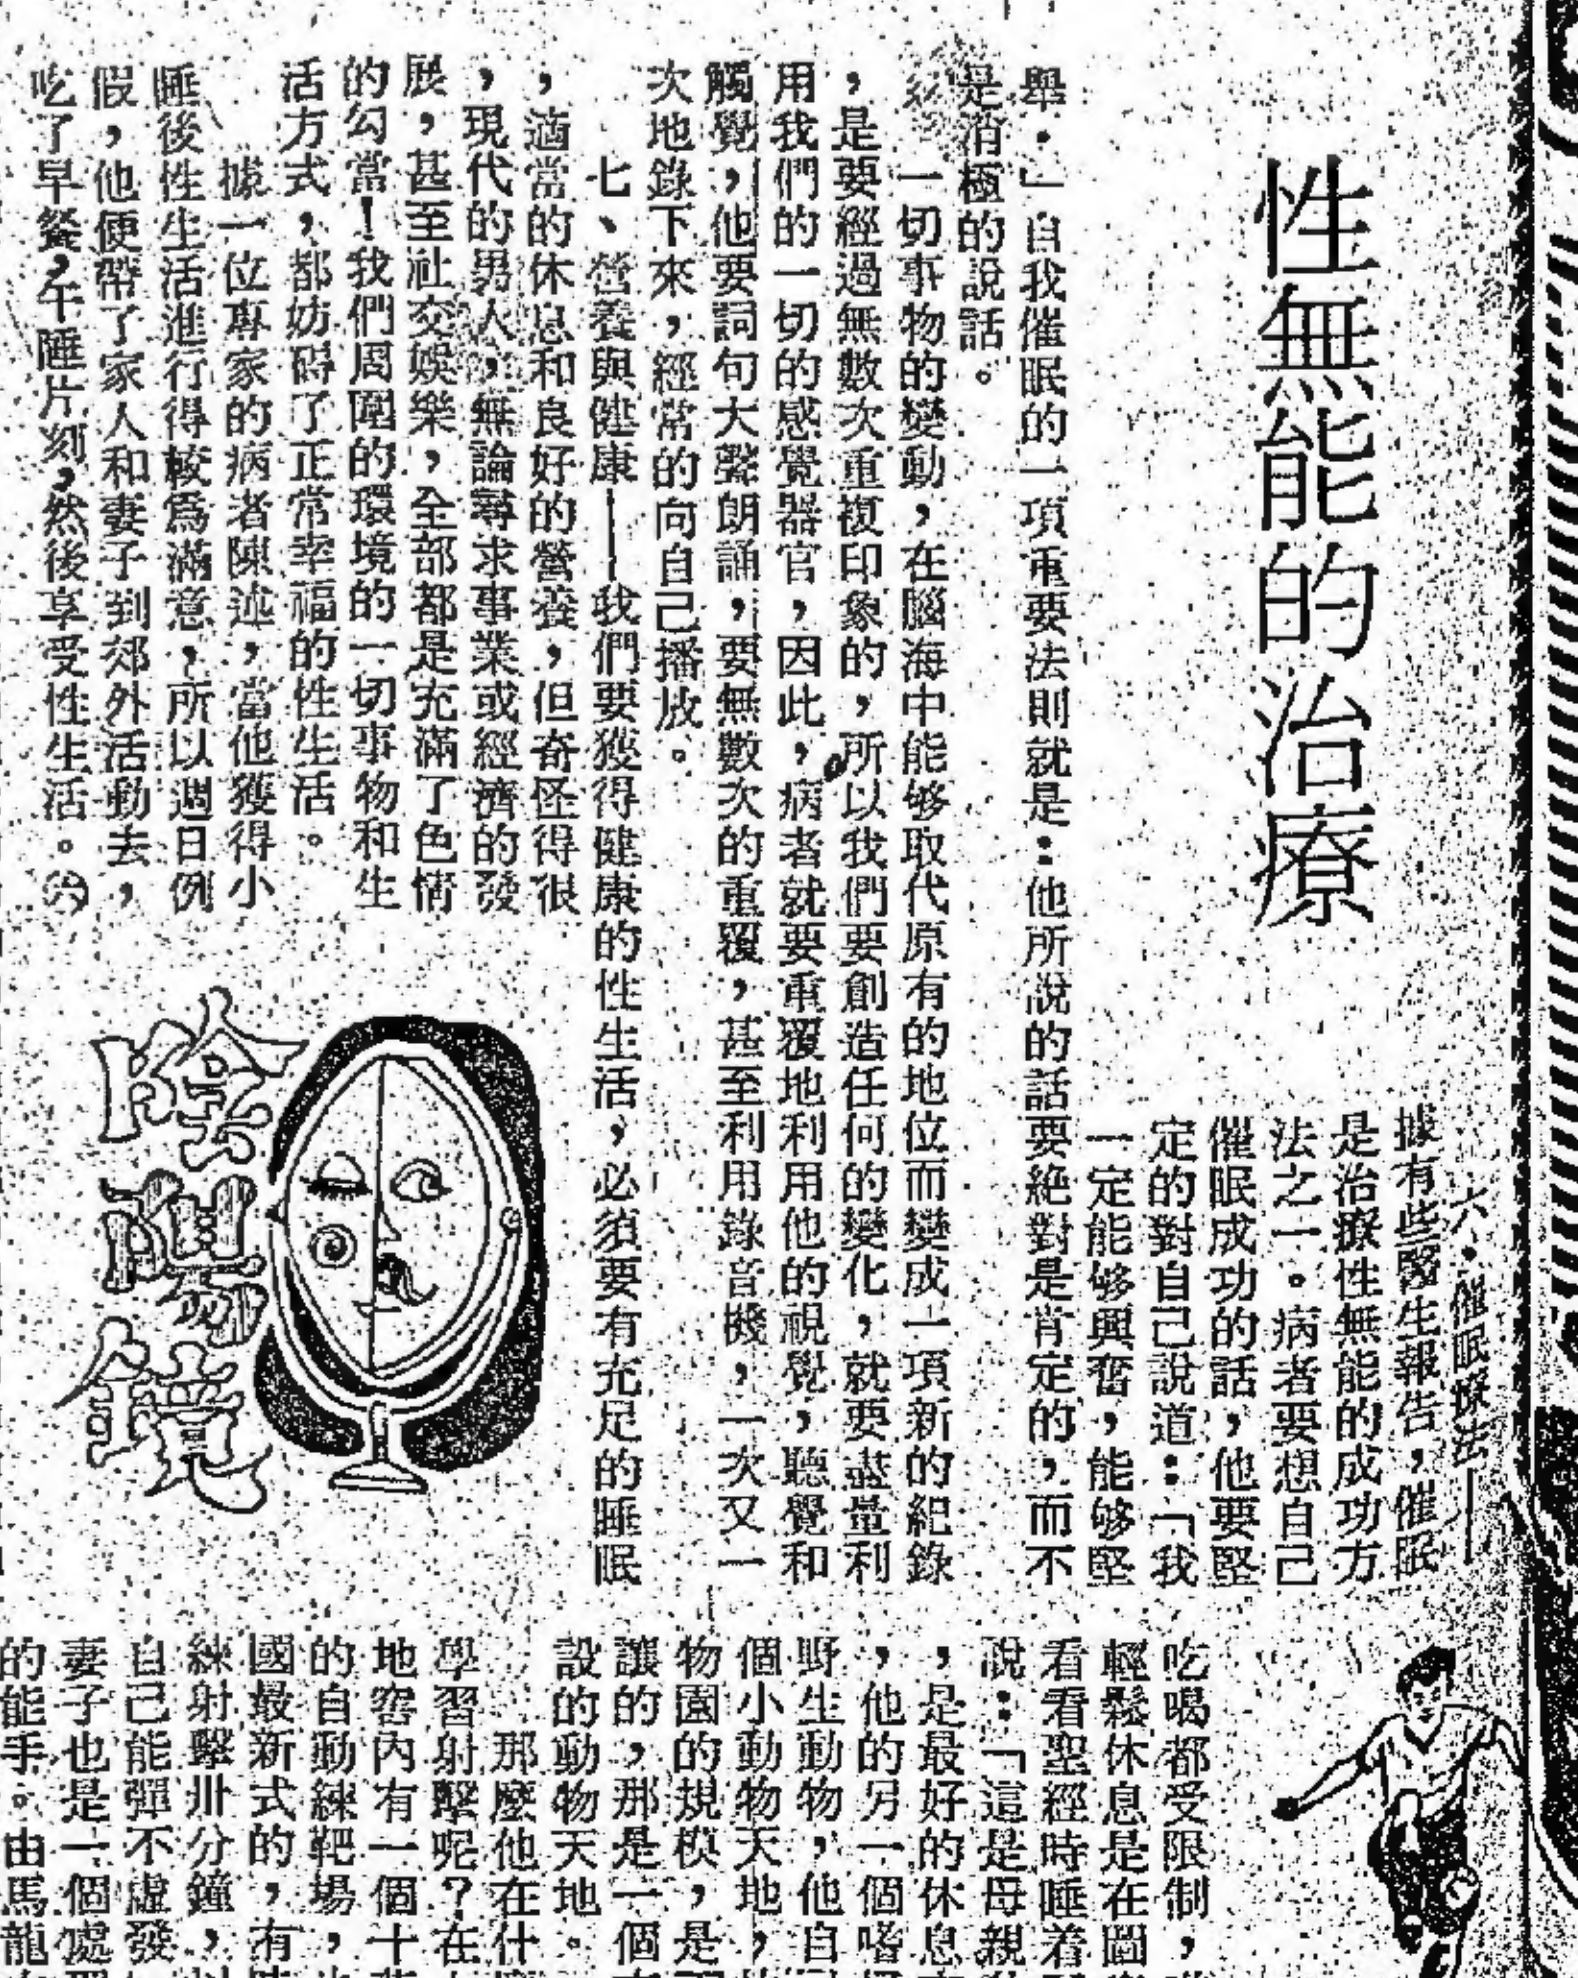 性無能的治療
六.催眠療法——
據有些醫生報告，催眠
是治療性無能的成功方
法之一。病者要想自己
催眠成功的話，他要堅
定的對自己說道：「我
一定能够興奮，能够堅
舉．」自我催眠的一項重要法則就是：他所說的話要絶對是肯定的，而不
是消極的說話。
一切事物的變動，在腦海中能够取代原有的地位而變成一項新的紀錄
，是要經過無數次重複印象的，所以我們要創造任何的變化，就要盡量利
用我們的一切的感覺器官，因此，病者就要重覆地利用他的視覺，聽覺和
觸覺，他要詞句大聲朗誦，要無數次的重覆，甚至利用錄音機，一次又一
次地錄下來，經常的向自己播放。
七、營養與健康——我們要獲得健康的性生活，必須要有充足的睡眠
，適當的休息和良好的營養，但奇怪得很
，現代的男人，無論尋求事業或經濟的發
展，甚至社交娛樂，全部都是充滿了色情
的勾當！我們周圍的環境的一切事物和生
活方式，都妨碍了正常幸福的性生活。
據一位專家的病者陳述，當他獲得小
睡後性生活進行得較爲滿意，所以週日例
假，他便帶了家人和妻子到郊外活動去，
吃了早餐，午睡片刻，然後享受性生活。㊅
陰陽鏡
吃喝都受限制，
輕鬆休息是在圖
看看聖經時睡着
說：「這是母親
，是最好的休息
，他的另一個嗜
野生動物，他自
個小動物天地，
物園的規模，是
讓的，那是一個
設的動物天地。
那麼他在什
學習射擊呢？在
地窖內有一個十
的自動練靶場，
國最新式的，有
練射擊卅分鐘，
自己能彈不虛發
妻子也是一個處
的能手。由馬龍